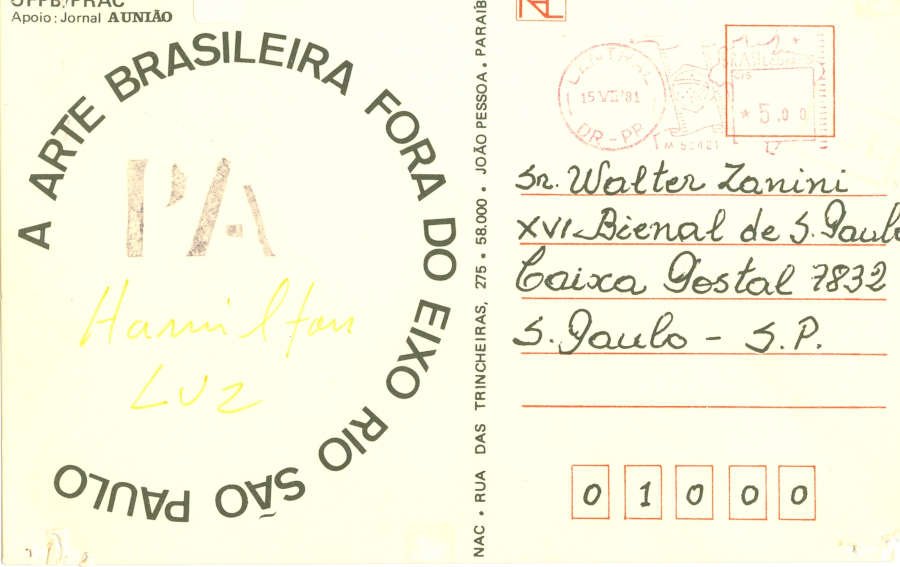 UFPB/PRAC
Apoio: Jornal A UNIÃO
A ARTE BRASILEIRA FORA DO EIXO RIO SÃO PAULO
PA
Hamilton
LUZ
NAC • RUA DAS TRINCHEIRAS, 275 • 58.000 • JOÃO PESSOA • PARAÍB
CENTRAL
15 VII '81
DR - PP
* 5,00
Sr. Walter Zanini
XVI-Bienal de S. Paulo
Caixa Postal 7832
S. Paulo - S.P.
0 1 0 0 0